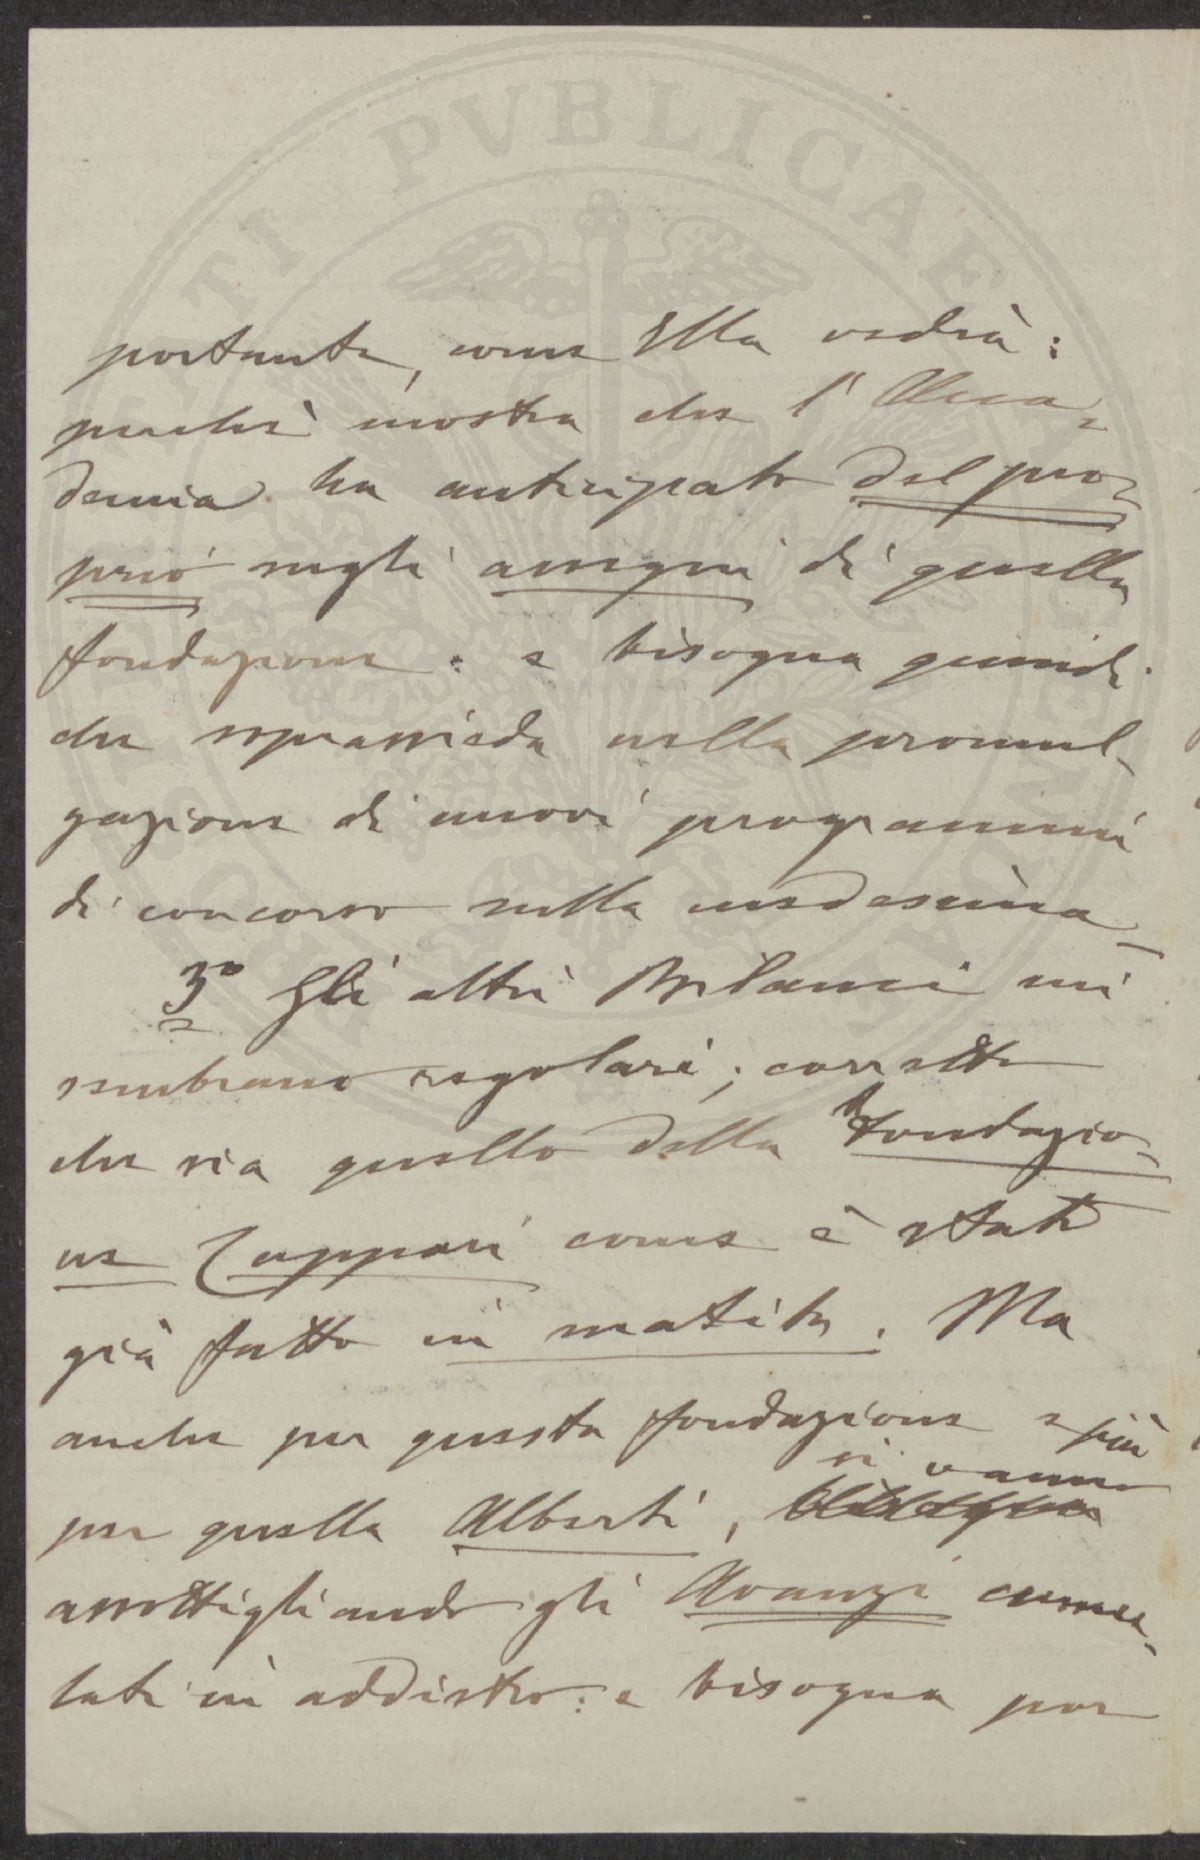 portante, come Ella vedrà:
perchè mostra che l'Acca-
demia ha anticipato del pro-
prio sugli assegni di quella
fondazione: e bisogna quindi
che soprassieda nella promul-
gazione di nuovi programmi
di concorso nella medesima
3º Gli altri Bilanci mi
sembrano regolari; corretto
che sia quello della Fondazio-
ne Zappari come è stato
già fatto in matita. Ma
anche per questa fondazione e più
per quella Alberti, si vanno
assottigliando gli Avanzi cumu-
lati in addietro: e bisogna por